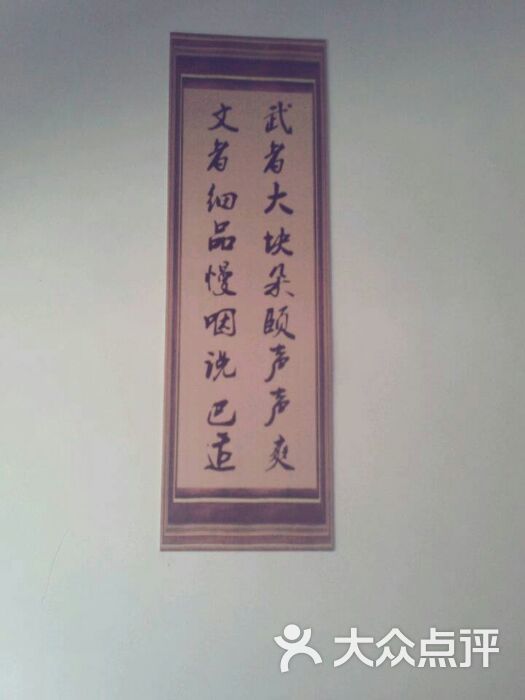 武者大块朵颐声声爽
文者细品慢咽说巴适
大众点评